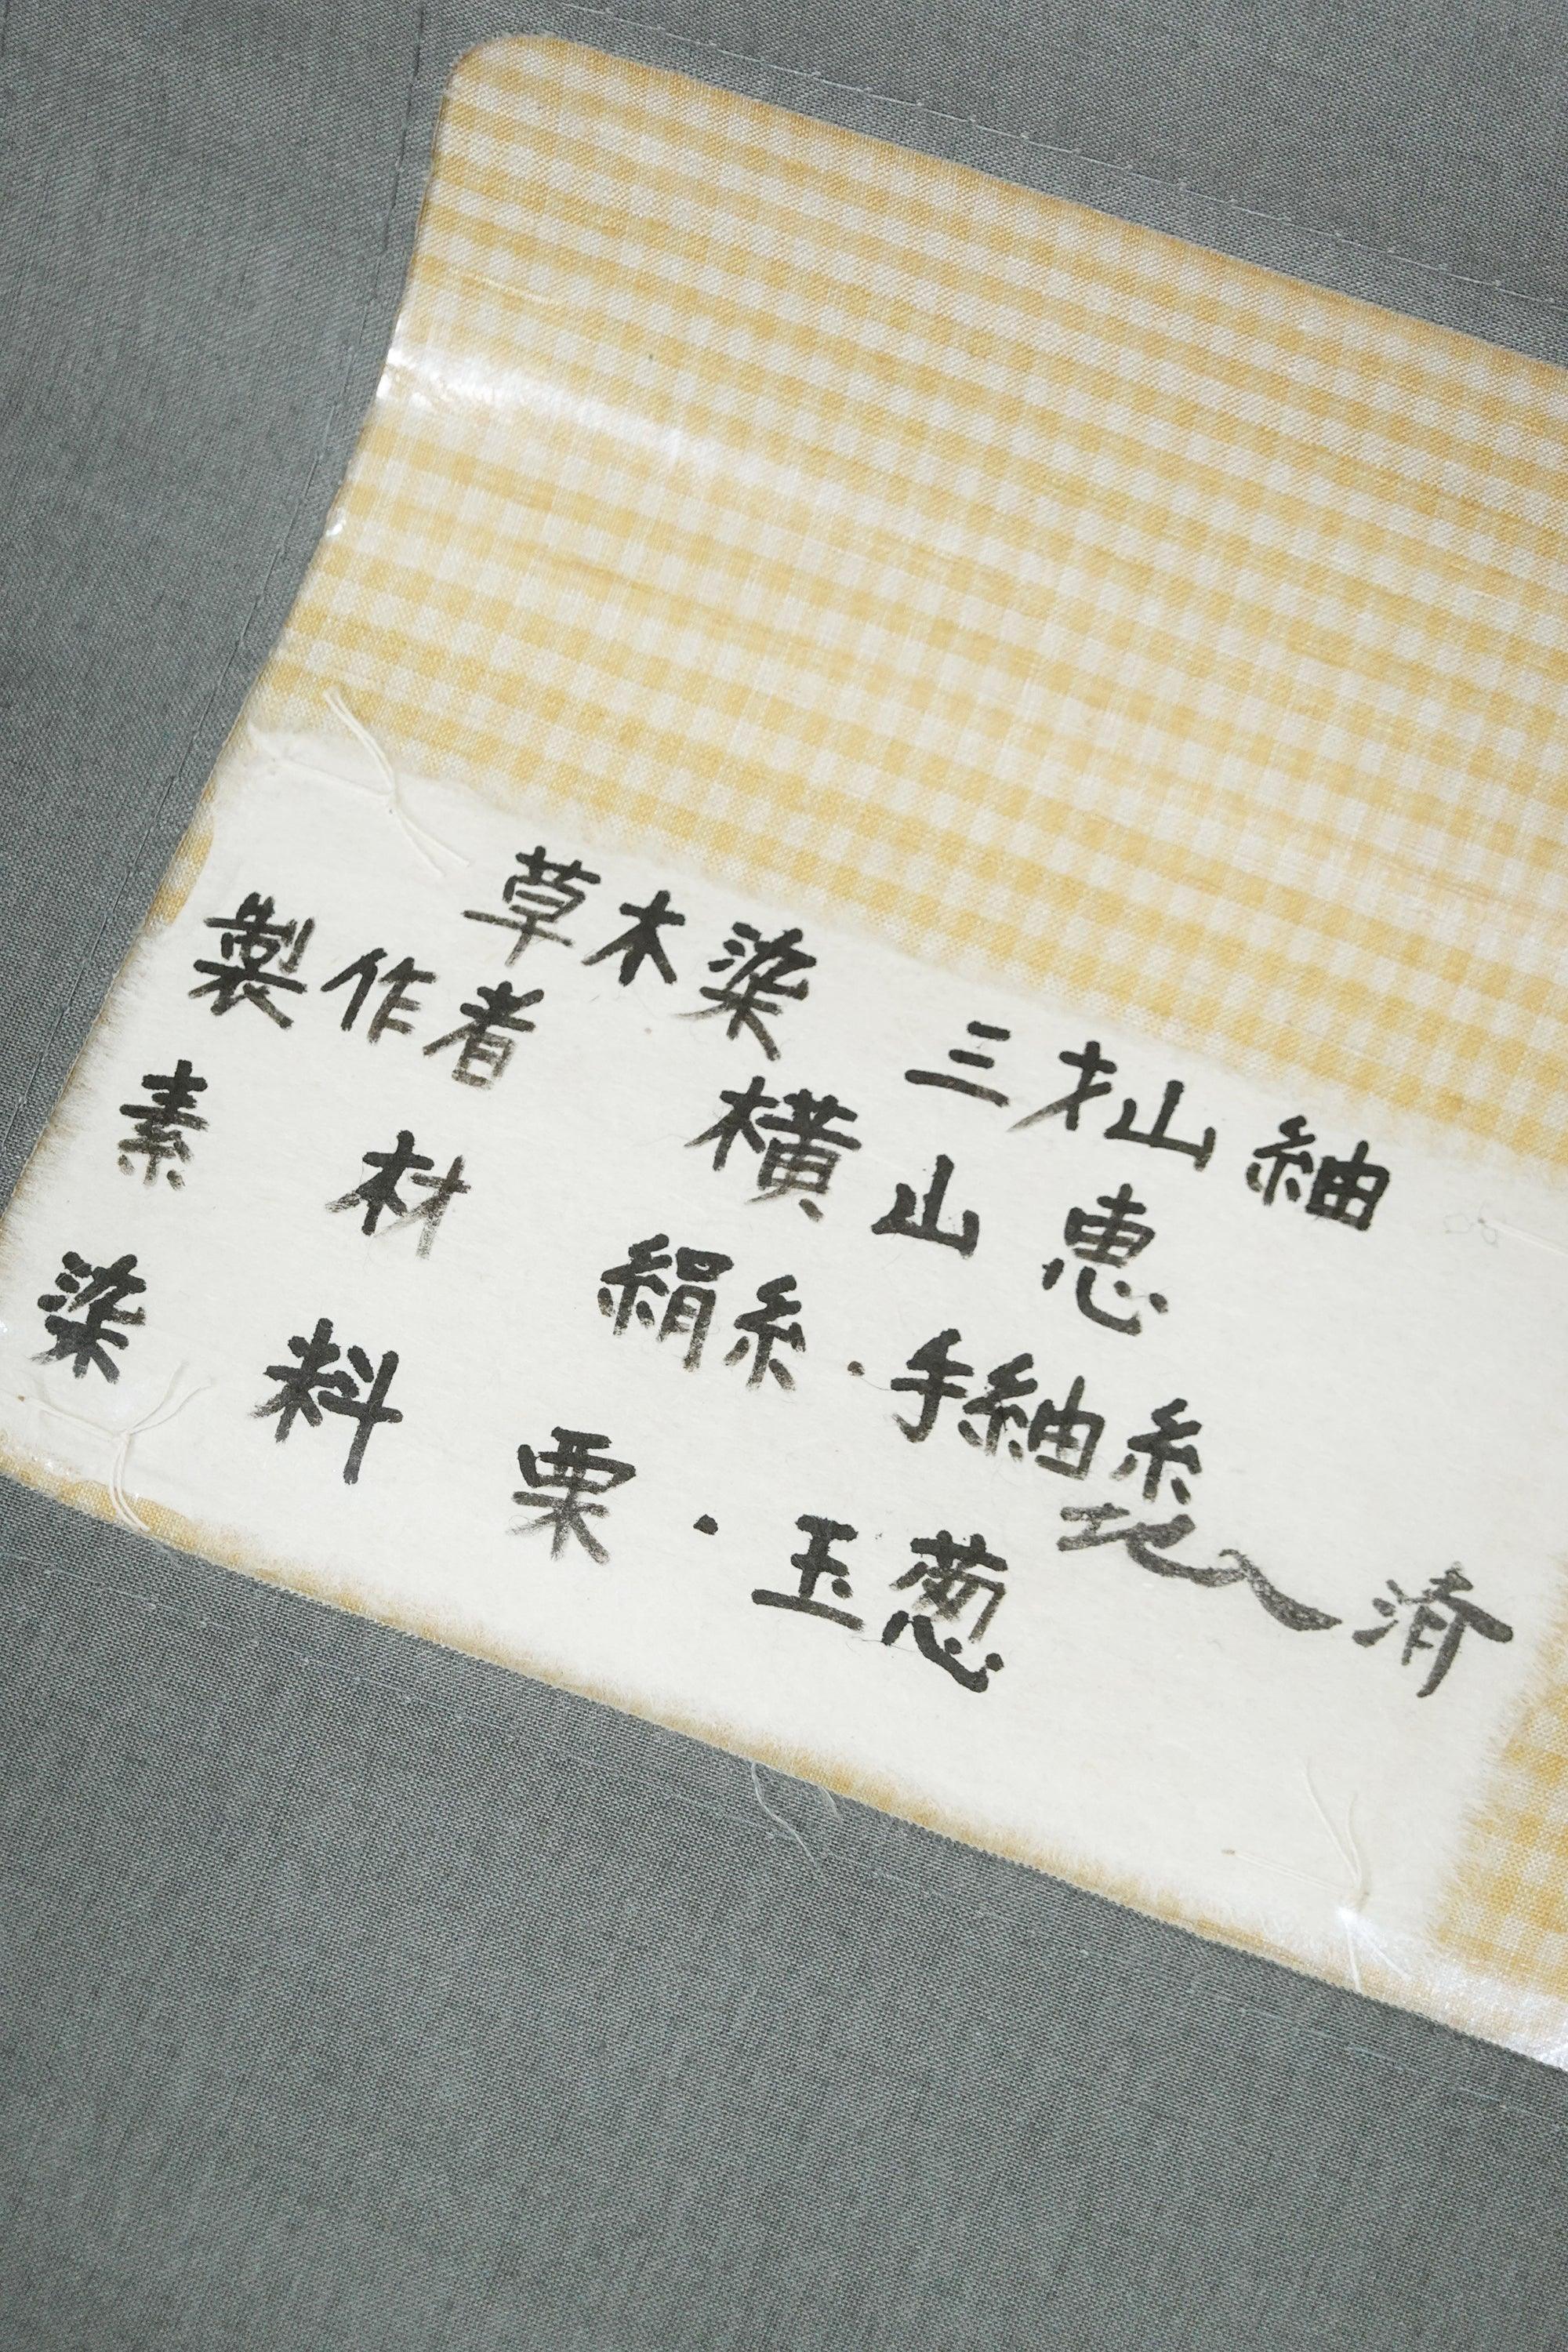 草木染 三才山紬
製作者 横山 恵
素 材 絹糸・手紬糸
染 料 栗・玉葱
地入済